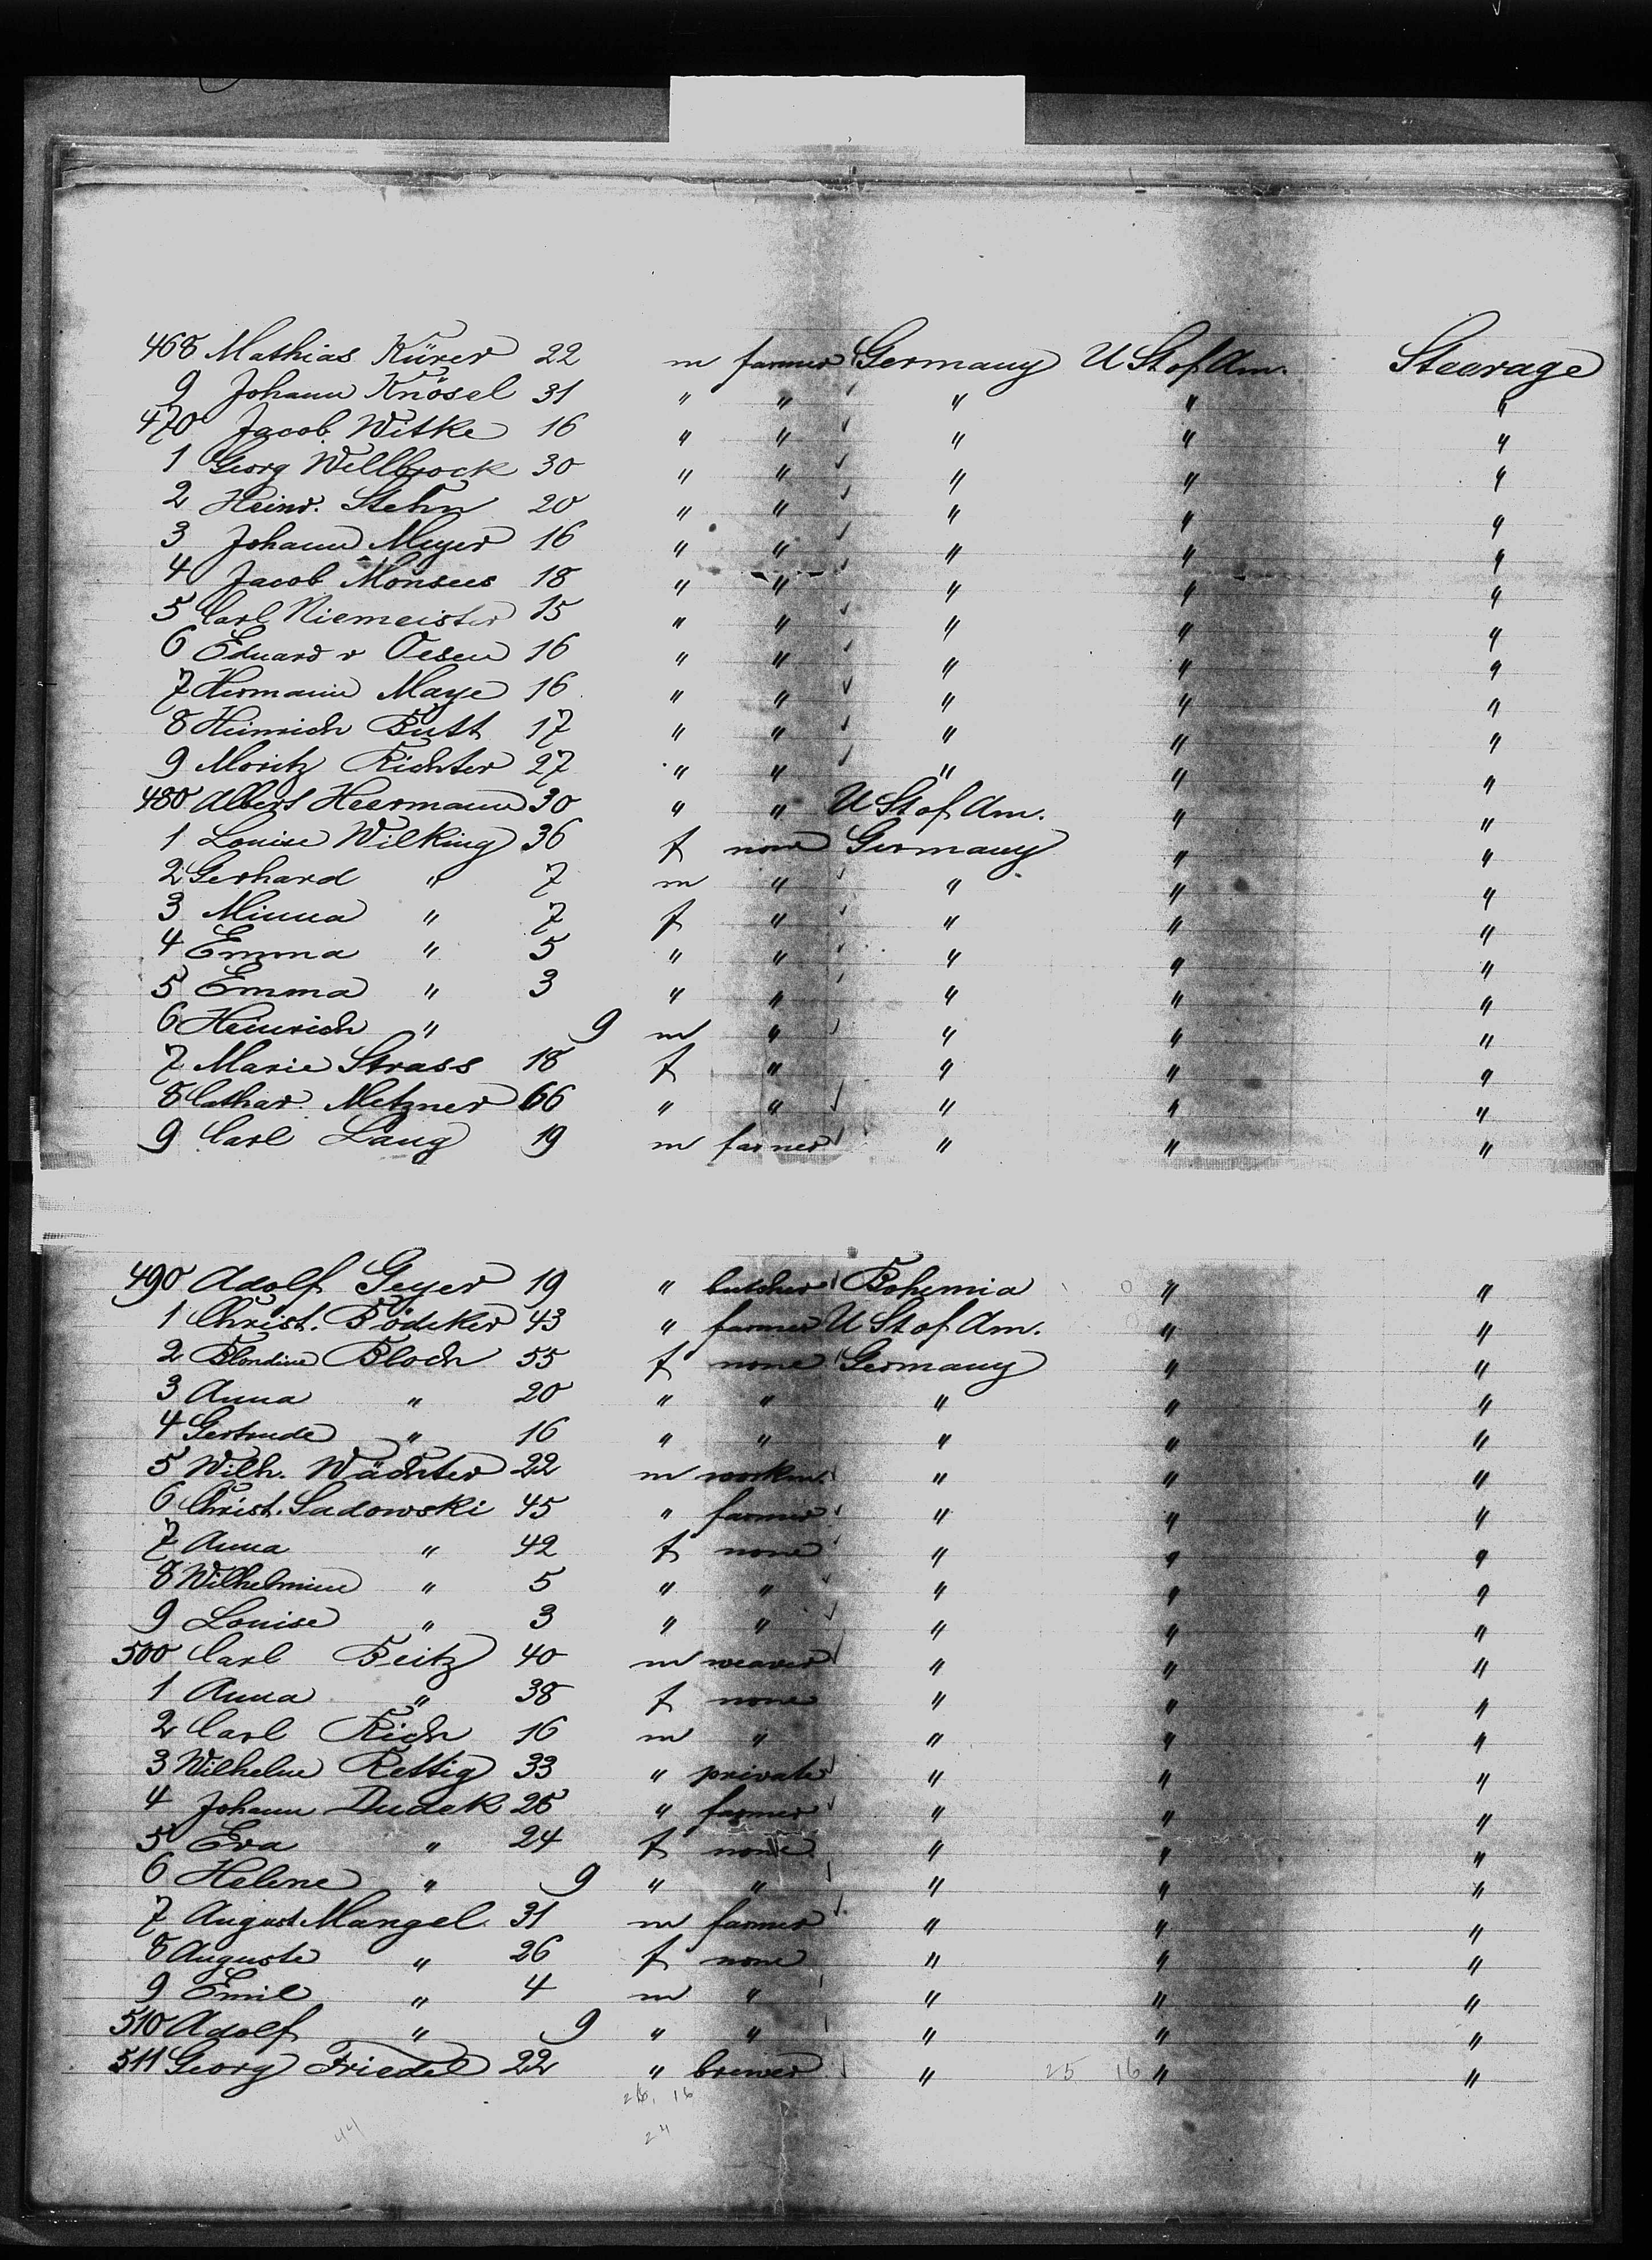 468 Mathias Kürer 22 m farmer Germany U St of Am. Steerage
9 Johann Knösel 31 " " " " "
470 Jacob Witke 16 " " " " "
1 Georg Wellbrock 30 " " " " "
2 Heinr. Stehn 20 " " " " "
3 Johann Meyer 16 " " " " "
4 Jacob Monsees 18 " " " " "
5 Carl Niemeister 15 " " " " "
6 Eduard v Oesen 16 " " " " "
7 Hermann Maye 16 " " " " "
8 Heinrich Butt 17 " " " " "
9 Moritz Richter 27 " " " " "
480 Albert Heermann 30 " " U St of Am. " "
1 Louise Wilking 36 f none Germany " "
2 Gerhard " 7 m " " " "
3 Minna " 7 f " " " "
4 Emma " 5 " " " " "
5 Emma " 3 " " " " "
6 Heinrich " 9 m " " " "
7 Marie Strass 18 f " " " "
8 Cathar. Metzner 66 " " " " "
9 Carl Lang 19 m farmer " " "
490 Adolf Geyer 19 " butcher Bohemia " "
1 Christ. Bödeker 43 " farmer U St of Am. " "
2 Blondine Bloch 55 f none Germany " "
3 Anna " 20 " " " " "
4 Gertrude " 16 " " " " "
5 Wilh. Wächter 22 m workm. " " "
6 Christ. Sadowski 45 " farmer " " "
7 Anna " 42 f none " " "
8 Wilhelmine " 5 " " " " "
9 Louise " 3 " " " " "
500 Carl Beitz 40 m weaver " " "
1 Anna " 38 f none " " "
2 Carl Rich 16 m " " " "
3 Wilhelm Rettig 33 " private " " "
4 Johann Dudek 25 " farmer " " "
5 Eva " 24 f none " " "
6 Helene " 9 " " " " "
7 August Mangel 31 m farmer " " "
8 Auguste " 26 f none " " "
9 Emil " 4 m " " " "
510 Adolf " 9 " " " " "
511 Georg Friedel 22 " brewer " 25 16 " "
44 24